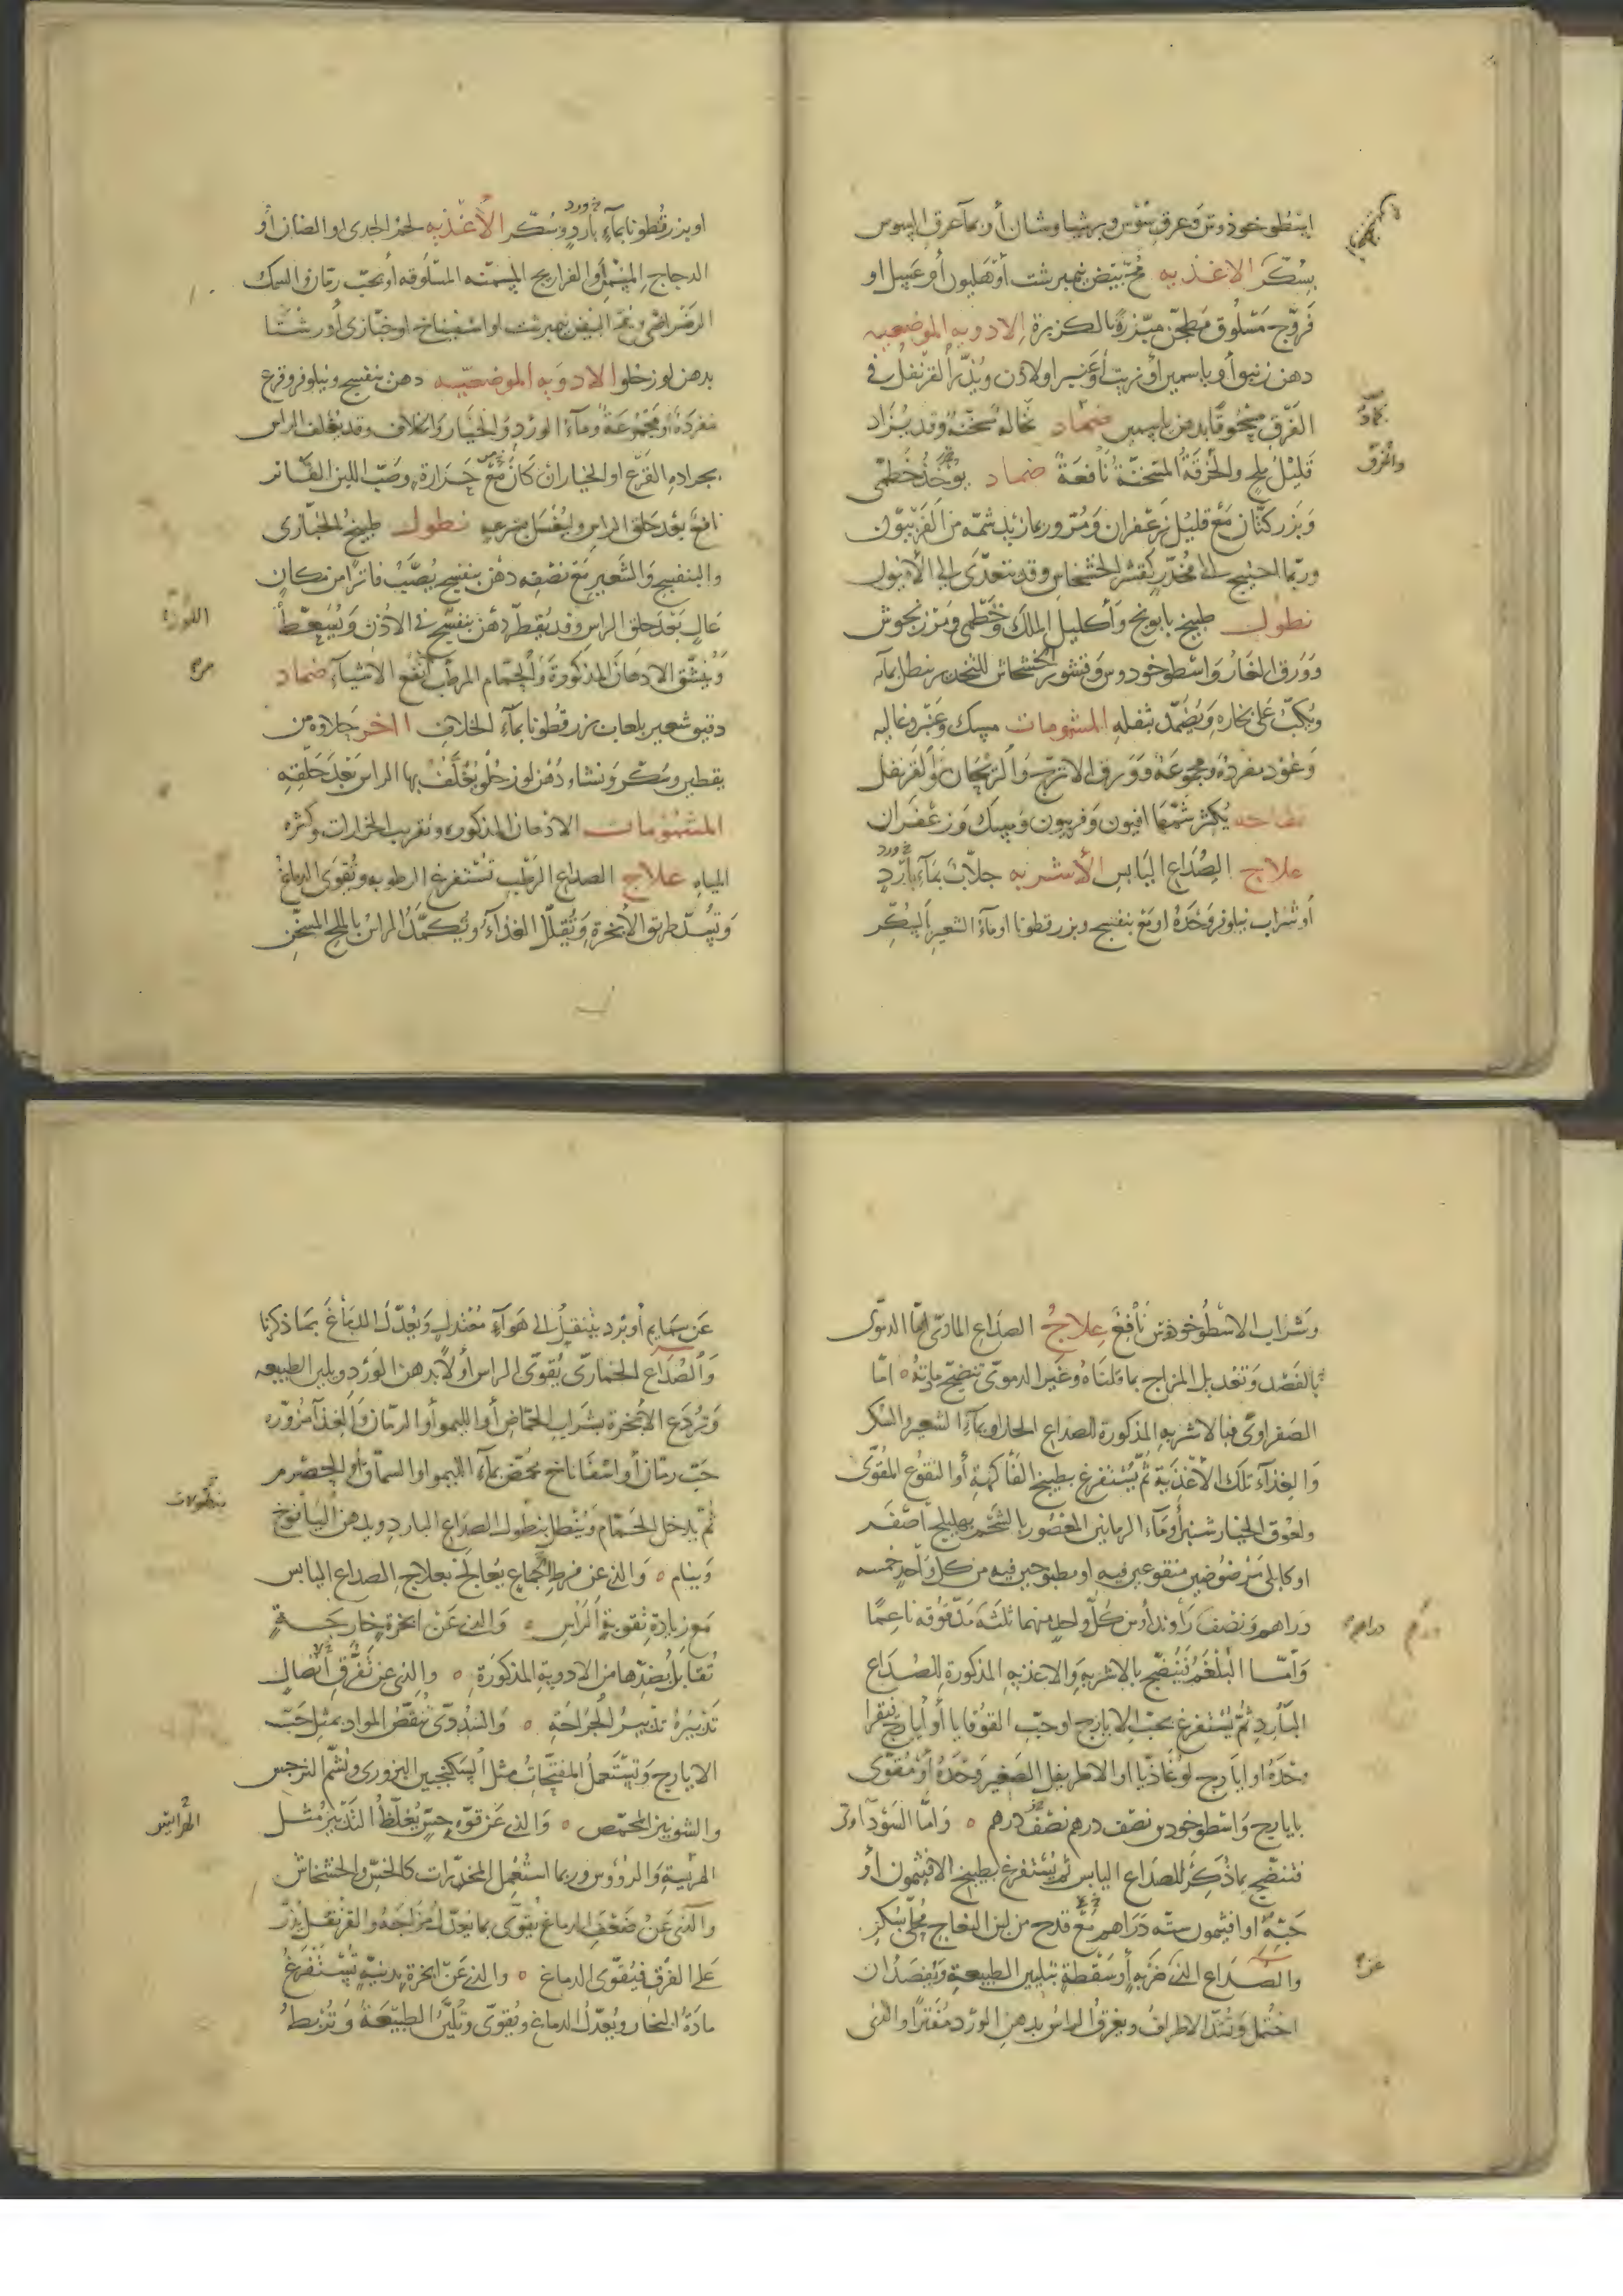 اسطوخوذوس وعرق سوس وبرشياوشان أو بماء عرق السوس
بسكر الاغذيه مح بيض نيمبرشت أو هليون أو عسل او
فروج مسلوق مطجن مبزرة بالكزبرة الادويه الموضعيه
دهن زنبق أو ياسمين أو زيت أو عنبر او لاذن ويذر القرنفل في
الفرق مسحوقا بدهن ياسمين ضماد نخاله مسخنة وقد يزاد
كماد
قليل ملح والخرقة المسخنة نافعة ضماد يوخذ خطمى
والخرق
وبزر كتان مع قليل زعفران ومر وربما زيد شمه من الفربيون
وربما احتيج الى مخدر كقشر الخشخاش وقد يتعدى الى الافيون
نطول طبيخ بابونج وأكليل الملك وخطمى ومرزنجوش
وورق الغار واسطوخودوس وقشور الخشخاش للتخدير ينطل بمائه
ويكب على بخاره ويضمد بثفله المشمومات مسك وعنبر وغاليه
وعود مفردة ومجموعة وورق الاترج والريحان والقرنفل
تفاحه يكثر شمها افيون وفربيون ومسك وزعفران
علاج الصداع اليابس الأشربه جلاب بماء بارد
أو شراب نيلوفر وحده او مع بنفسج وبزر قطونا او ماء الشعير بالسكر
او بزر قطونا بماء بارد وسكر الأغذيه لحم الجدى او الضان أو
الدجاج المسمن أو الفراريج المسمنه المسلوقه أو بحب رمان والسمك
الرضراضى ومح البيض نيمبرشت او اسفيناخ او خبازى أو رشتا
بدهن لوز حلو الادويه الموضعيه دهن بنفسج ونيلوفر وقرع
مفردة أو مجموعة وماء الورد والخيار والخلاف وقد يغلف الراس
بجراده القرع او الخيار ان كان مع حرارة وصب اللبن الفاتر
نافع بعد حلق الراس وليغسل بسرعه نطول طبيخ الخبازى
والبنفسج والشعير مع نصفه دهن بنفسج يصب فاترا من مكان
عال بعد حلق الراس وقد يقطر دهن بنفسج في الاذن ويسعط
وينشق الادهان المذكورة والحمام المرطب أنفع الاشياء ضماد
دقيق شعير بلعاب بزر قطونا بماء الخلاف اخر حلاوه من
يقطين وسكر ونشاء ودهن لوز حلو يغلف بها الراس بعد حلقه
المشمومات الادهان المذكوره وتقريب الخرارات وكثره
المياه علاج الصداع الرطب تستفرغ الرطوبه وتقوى الدماغ
وتسد طريق الأبخرة وتقلل الغذاء وتكمد الراس بالملح المسخن
وشراب الاسطوخوذس نافع علاج الصداع المادى اما الدموى
بالفصد وتعديل المزاج بما قلناه وغير الدموى تنضج مادته ٥ اما
الصفراوى فبالاشربه المذكورة للصداع الحار او بماء الشعير والسكر
والغذاء تلك الأغذية ثم يستفرغ بطبيخ الفاكهة أو النقوع المقوى
ولعوق الخيار شنبر أو ماء الرمانين المعصور بالشحم بهليلج اصفر
او كابلى مرضوضين منقوعين فيه او مطبوخين فيه من كل واحد خمسه
دراهم ونصف راوند أو من كل واحد منهما ثلثه مدقوقه ناعما
دراهم
وأما البلغم فينضج بالاشربه والاغذيه المذكورة للصداع
البارد ثم يستفرغ بحب الايارج او حب القوقايا أو أيارج فيقرا
وحده او ايارج لوغاذيا او الاطريفل الصغير وحده أو مقوى
بايارج واسطوخودس نصف درهم نصف درهم ٥ واما السوداوى
فتنضج بما ذكر للصداع اليابس ثم يستفرغ بطبيخ الافتيمون أو
حبه او افتيمون سته دراهم مع قدح من لبن النعاج محلى بسكر
والصداع الذى عن ضربه أو سقطة بتليين الطبيعة وبفصد ان
احتمل وتشد الاطراف ويغرق الراس بدهن الورد مفترا والذى
عن سمايم أو برد ينتقل الى هواء معتدل ويعدل الدماغ بما ذكرنا
والصداع الخمارى يقوى الراس أولا بدهن الورد ويلين الطبيعه
وتردع الأبخرة بشراب الحماض أو الليمو أو الرمان والغذا مزوره
حب رمان أو اسفاناخ محمض بماء الليمو او السماق أو الحصرم
ثم يدخل الحمام وينطل بنطول الصداع البارد وبدهن البابونج
وينام ٥ والذى عن فرط الجماع يعالج بعلاج الصداع اليابس
مع زيادة تقوية الراس ٥ والذى عن ابخرة خارجة
تقابل بضدها من الادوية المذكورة ٥ والذى عن تفرق اتصال
تدبيره تدبير الجراحة ٥ والسددى تنقص المواد بمثل حب
الايارج وتستعمل المفتحات مثل السكنجبين البزورى وشم النرجس
والشونيز المحمص ٥ والذى عن قوة حس يغلظ التدبير مثل
الهرايس
الهريسة والرؤوس وربما استعمل المخدرات كالخس والخشخاش
والذى عن ضعف الدماغ يقوى بما يعدل مزاجه والقرنفل يذر
على الفرق فيقوى الدماغ ٥ والذى عن ابخرة بدنيه تستفرغ
مادة البخار ويعدل الدماغ ويقوى وتلين الطبيعة وتربط